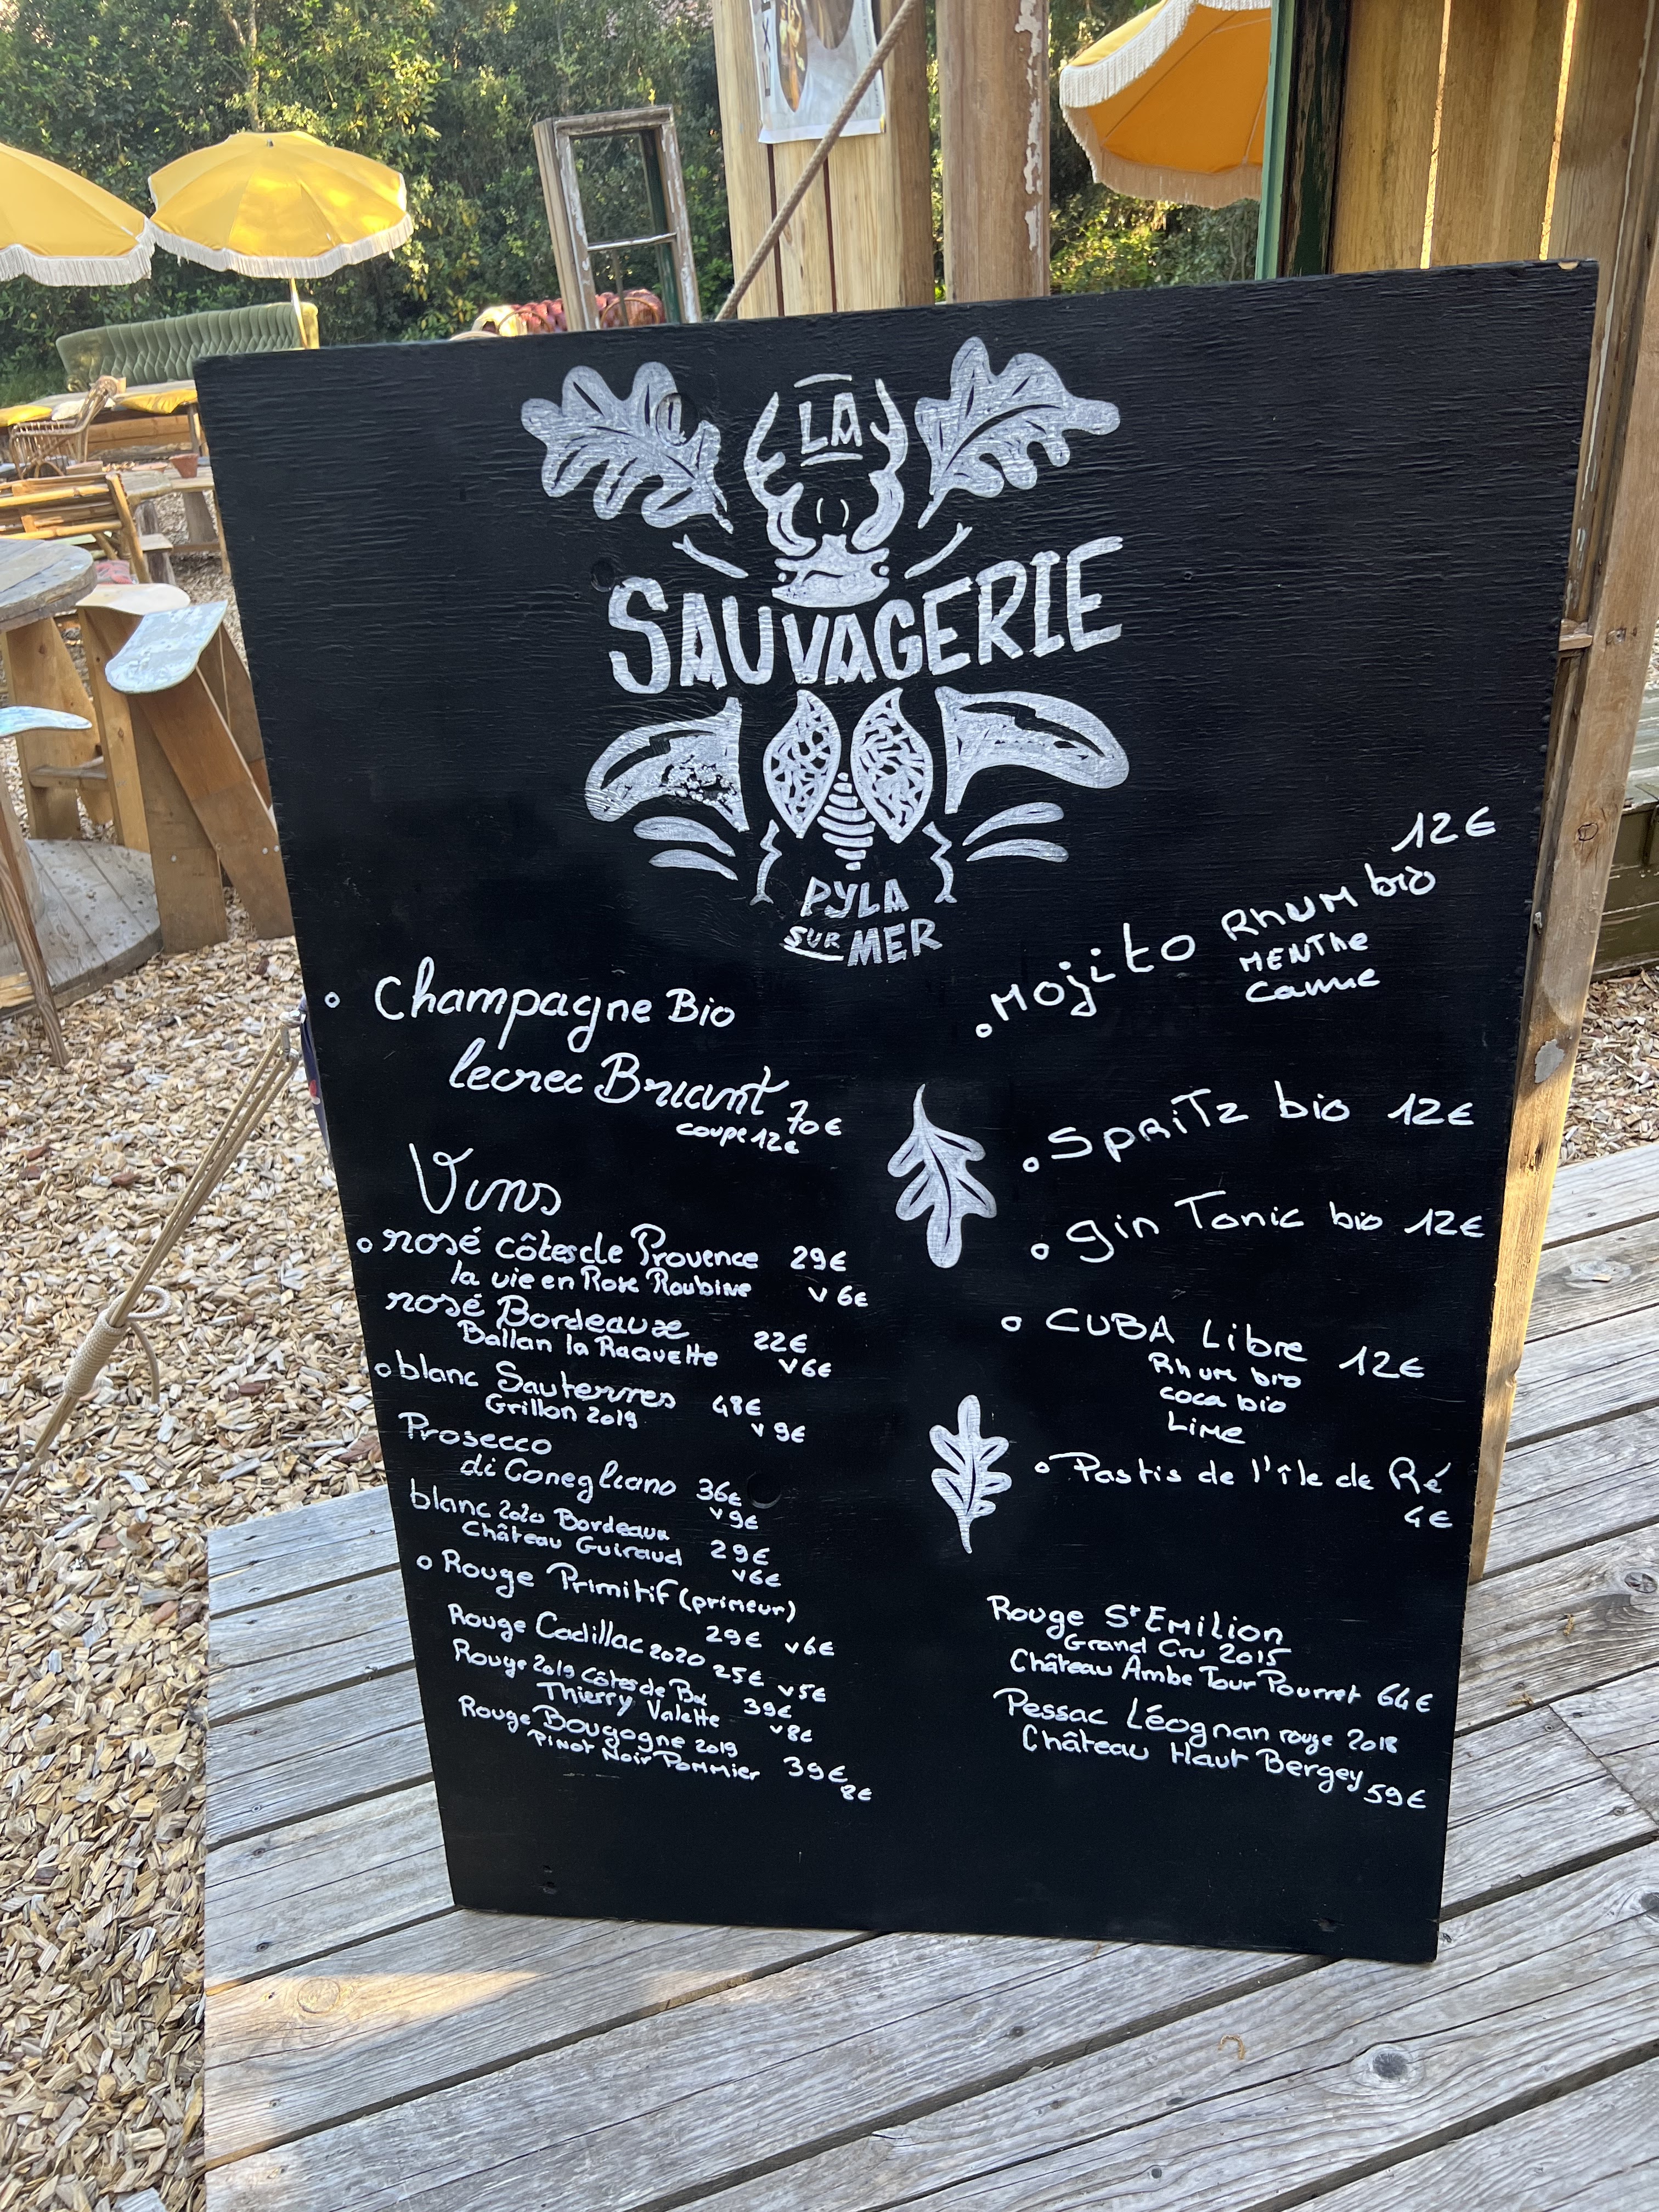 LA
SAUVAGERIE
PYLA
SUR MER
Champagne Bio
lecrec Briant 70€
coupe 12€
Vins
rosé côtes de Provence 29€
la vie en Rose Roubine v 6€
rosé Bordeaux
Ballan la Raquette 22€
v 6€
blanc Sauternes 48€
Grillon 2019 v 9€
Prosecco
di Conegliano 36€
v 9€
blanc 2020 Bordeaux
Château Guiraud 29€
v 6€
Rouge Primitif (primeur)
29€ v 6€
Rouge Cadillac 2020 25€ v 5€
Rouge 2019 Côtes de Bx
Thierry Valette 39€
v 8€
Rouge Bougogne 2019
Pinot Noir Pommier 39€
8€
12€
Mojito Rhum bio
Menthe
Canne
Spritz bio 12€
gin Tonic bio 12€
CUBA Libre 12€
Rhum bio
coca bio
Lime
Pastis de l'île de Ré
4€
Rouge St Emilion
Grand Cru 2015
Château Ambe Tour Pourret 64€
Pessac Léognan rouge 2018
Château Haut Bergey 59€